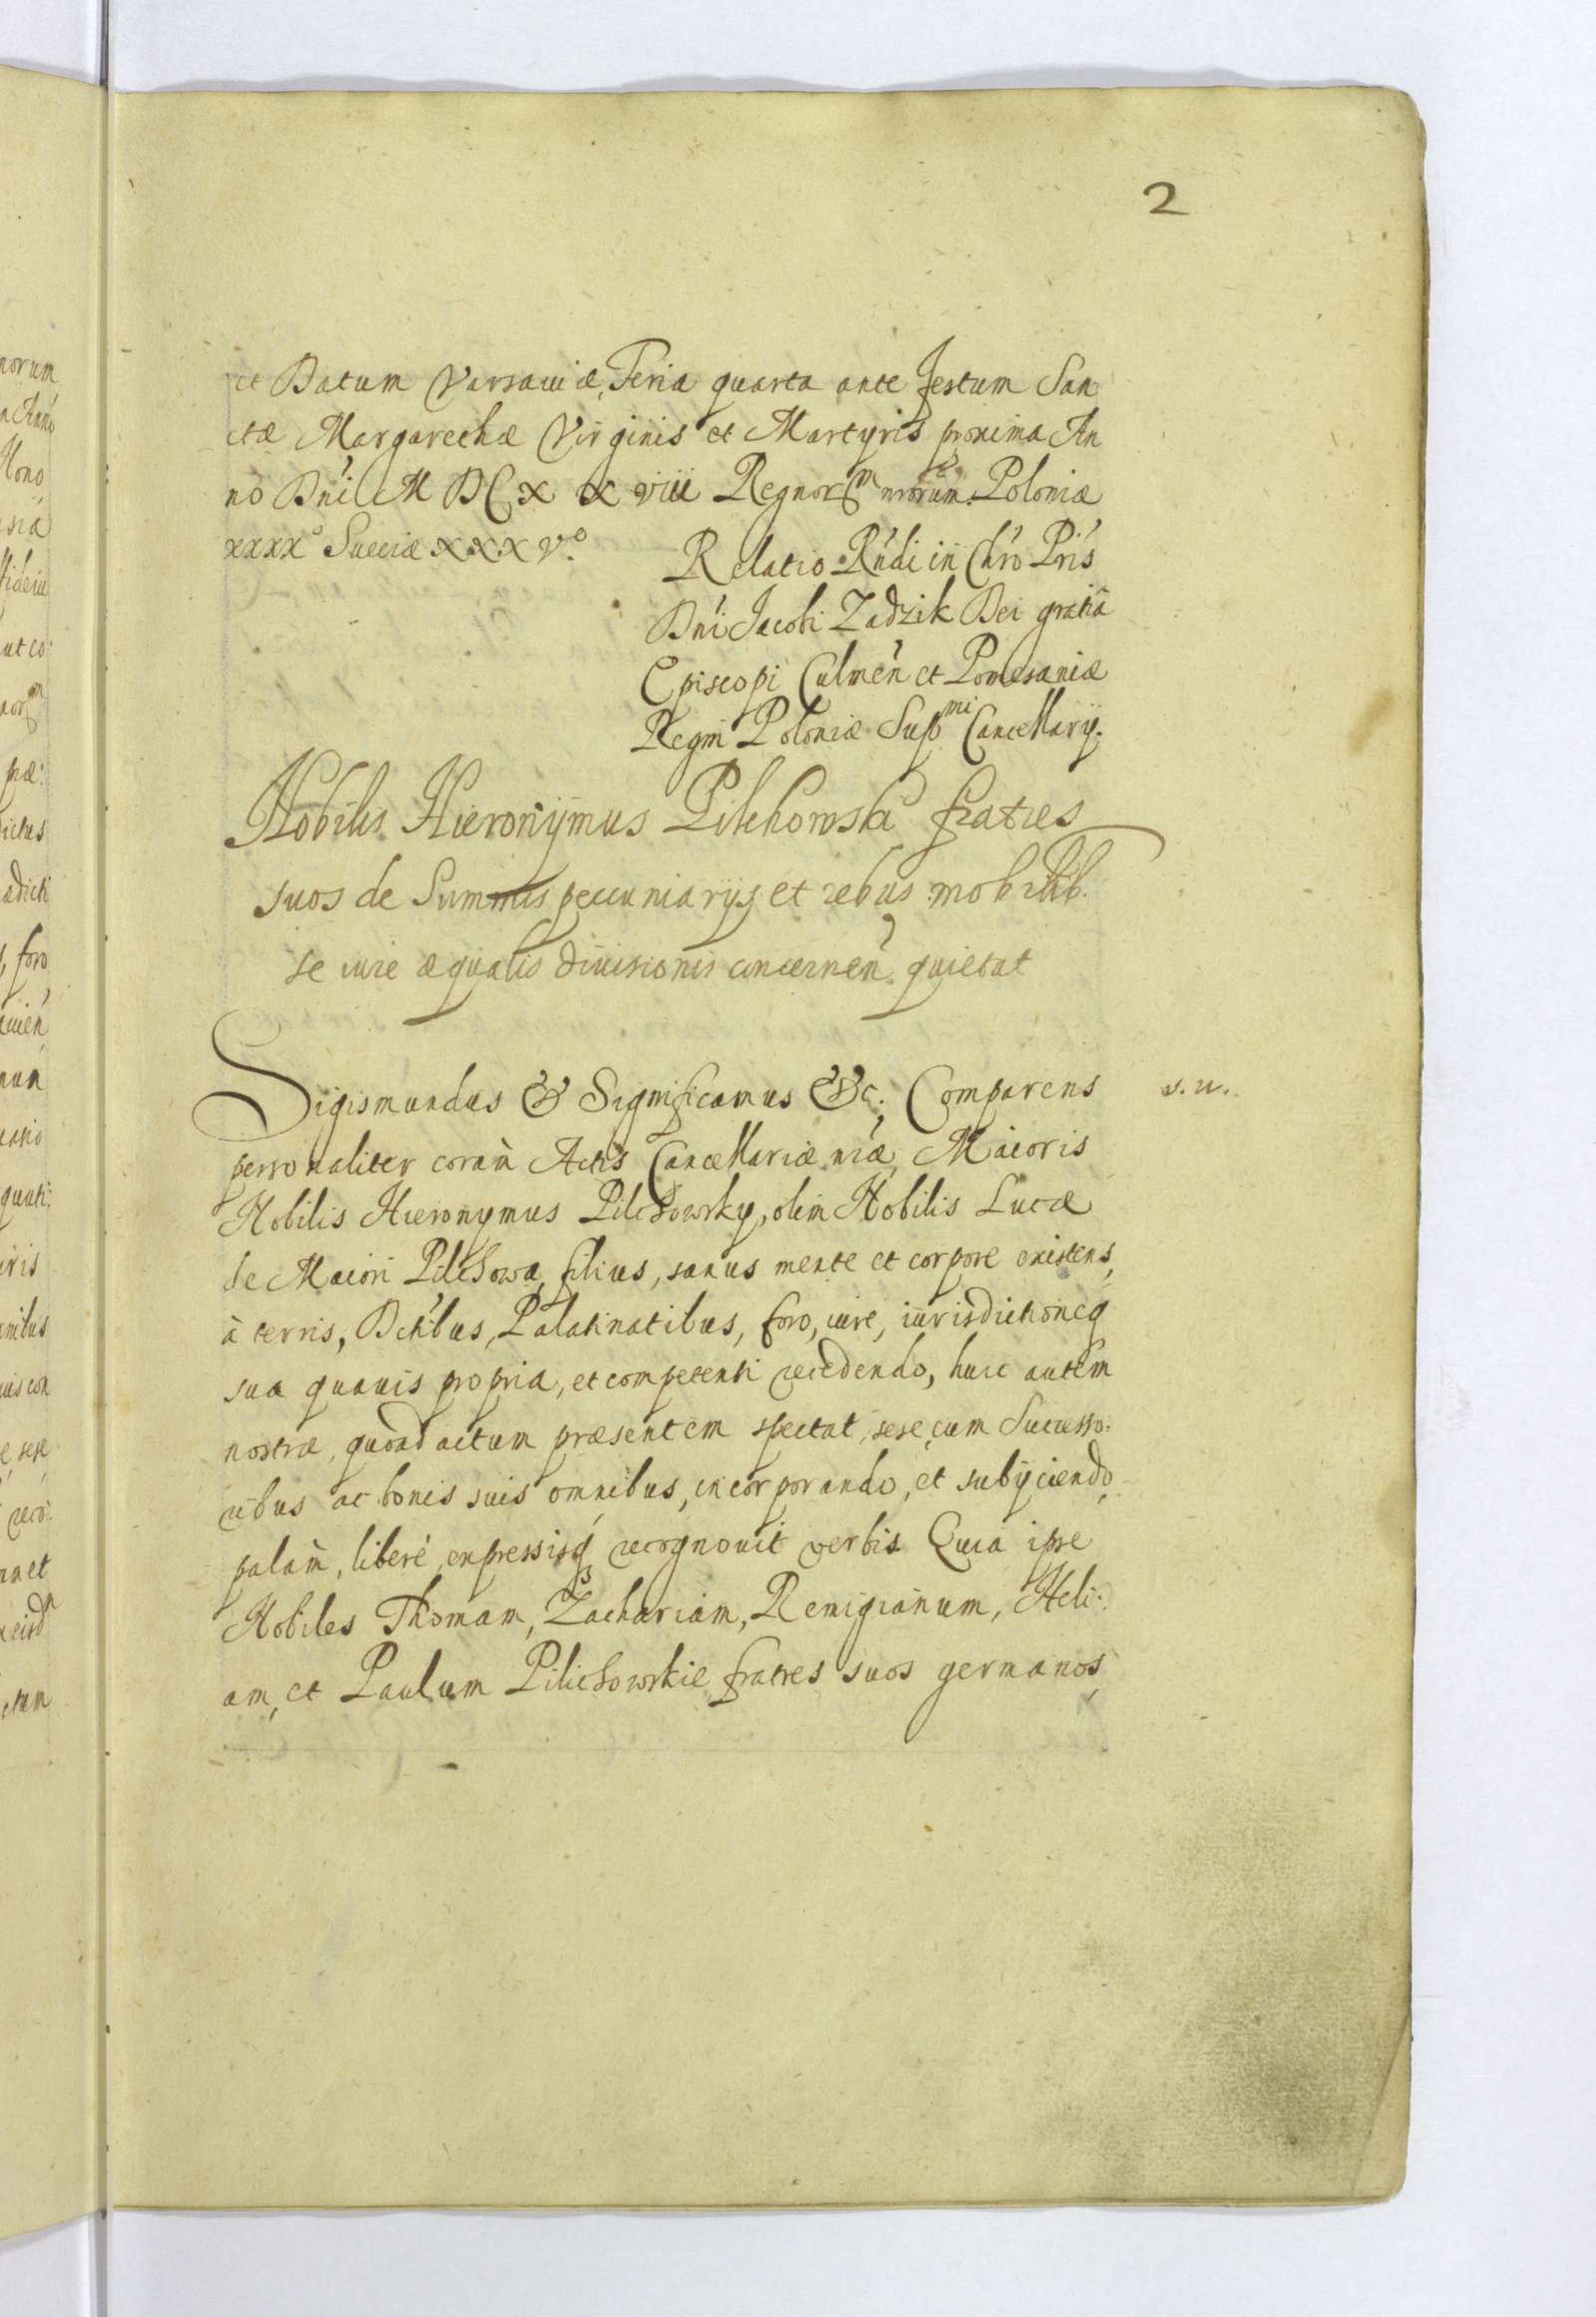 2
et Datum Varsaviæ, Feria quarta ante festum San
ctæ Margarethæ Virginis et Martyris proxima An
no Dni M DC X X viii Regnorm nrorum Poloniæ
xxxxo Sueciæ XXX Vo.
Relatio Rndi in Chro Pris
Dni Jacobi Zadzik Dei gratia
Episcopi Culmen et Pomesaniæ
Regni Poloniæ Supmi Cancellarij.
Nobilis Hieronymus Pilchowski fratres
suos de Summis pecuniarijs et rebus mobilib.
se iure æqualis divisionis concernen. quietat
Sigismundus & Significamus &c. Comparens
s. n.
personaliter coram Actis Cancellariæ nræ Maioris
Nobilis Hieronymus Pilichowsky, olim Nobilis Lucæ
de Maiori Pilichowa filius, sanus mente et corpore existens,
à terris, Dctibus, Palatinatibus, foro, iure, iurisdictioneq
sua quavis propria, et competenti recedendo, huic autem
nostræ, quoad actum præsentem spectat, sese cum Successo:
ribus ac bonis suis omnibus, incorporando, et subijciendo,
palam, liberè, expressisq recognovit verbis Quia ipse
Nobiles Thomam, Zachariam, Remigianum, Heli:
am, et Paulum Pilichowskie fratres suos germanos,